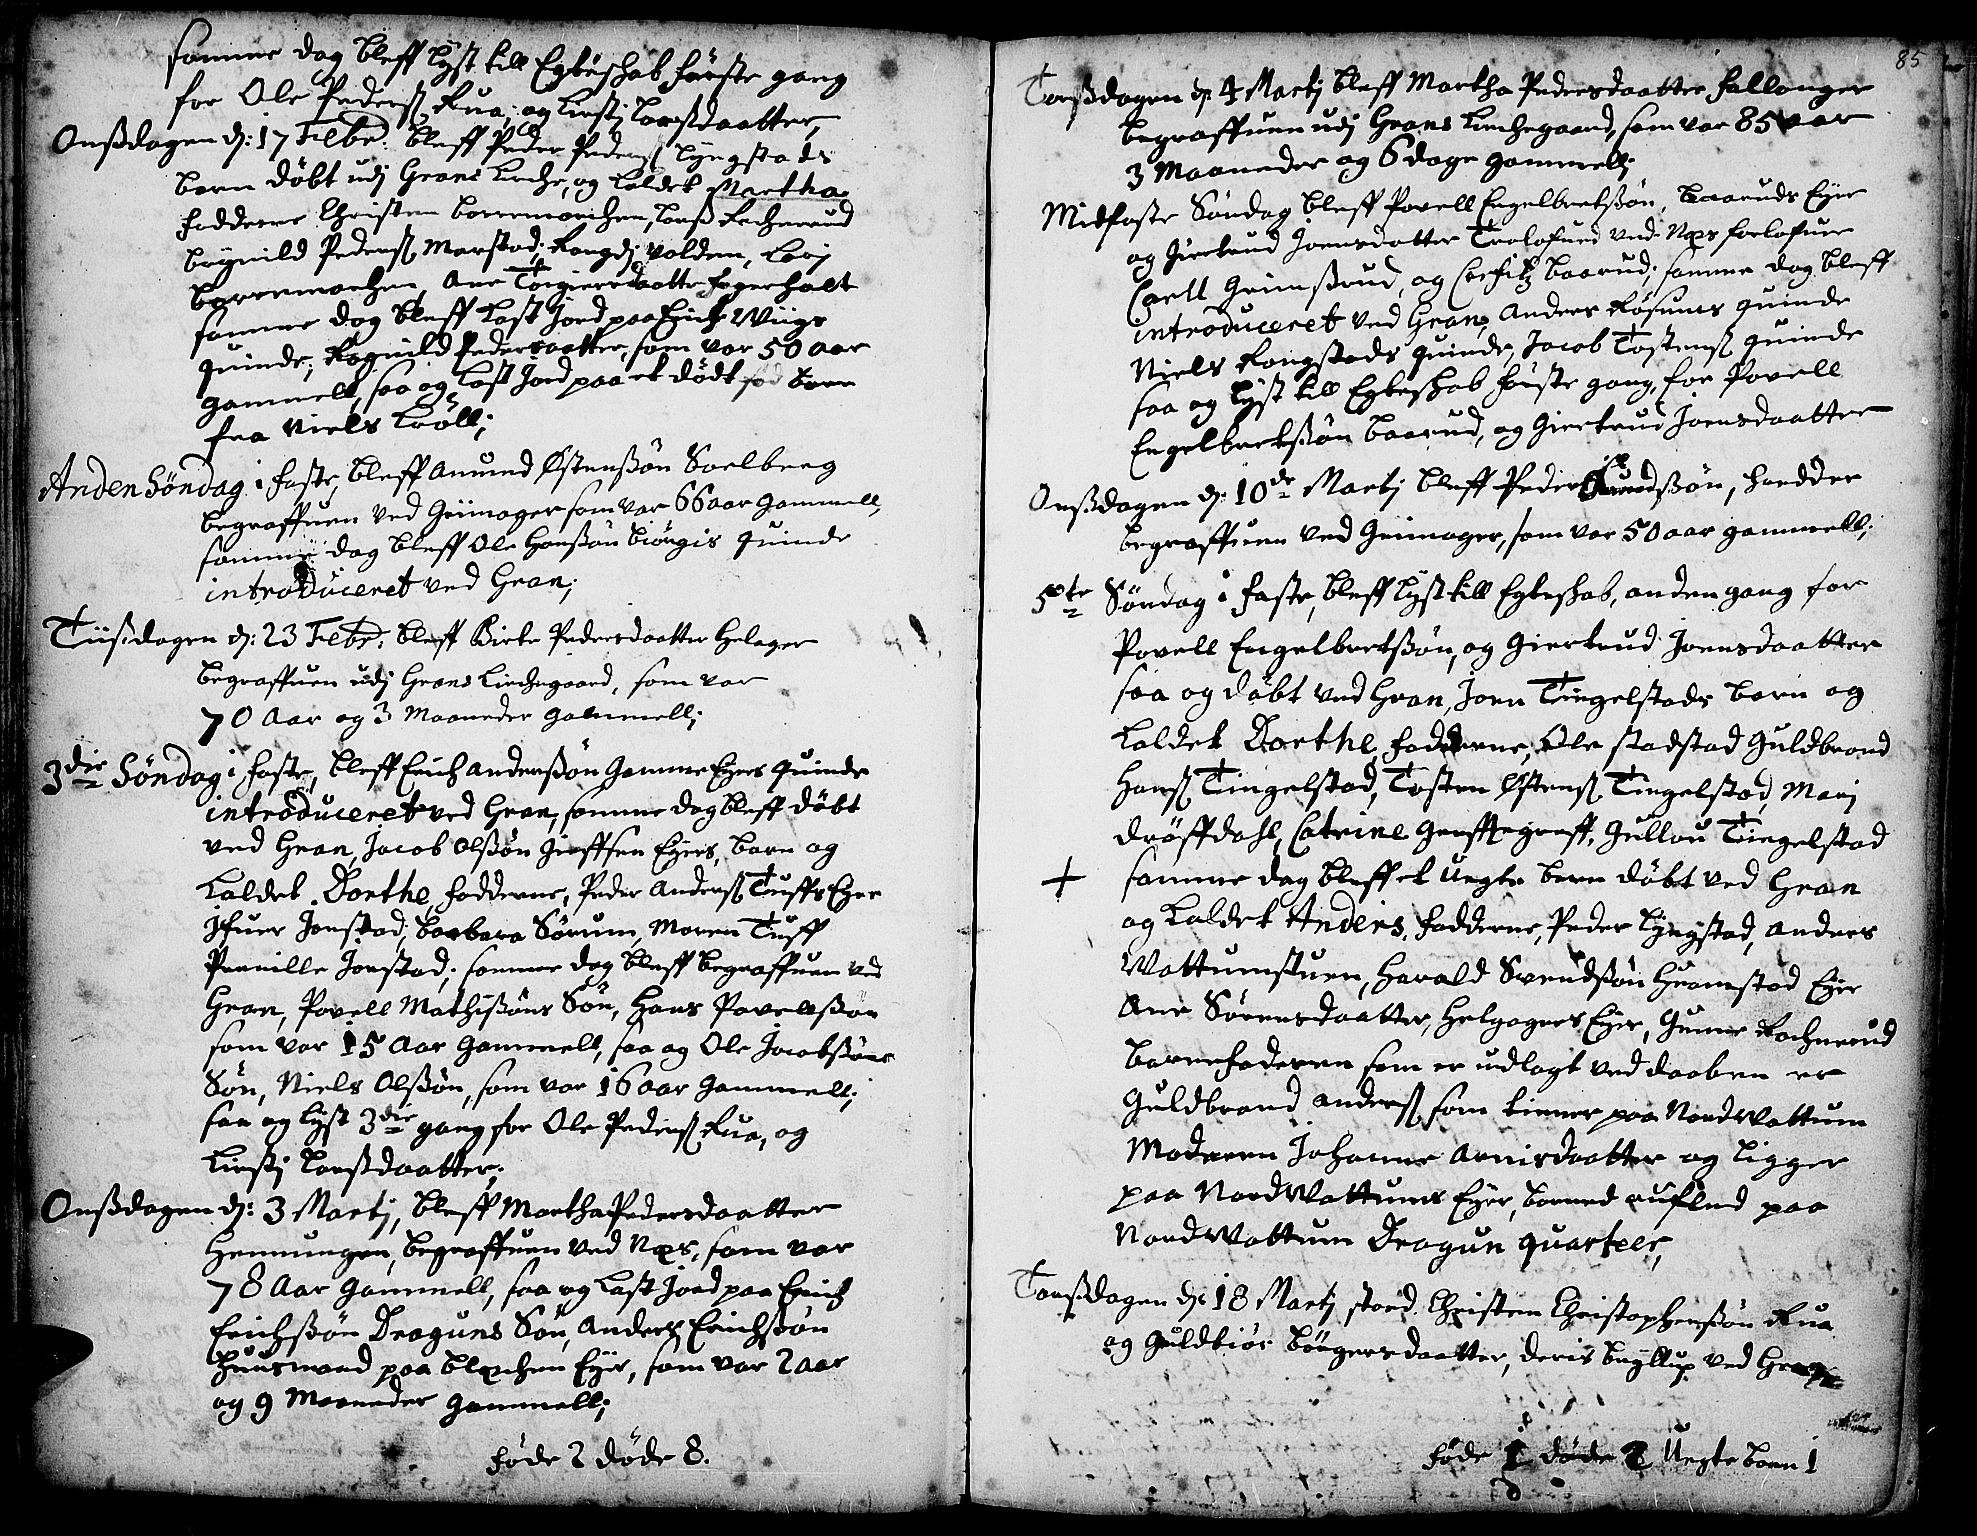 samme dag bleff lyst till Egteschab første gang
for Ole Peders: Rua, og Kirstj Larsdaatter,
Onsßdagen d: 17 Febr: bleff Peder Peders: Lyngstads
barn döbt udj Grans Kirche, og kaldet Martha
fadderne Christen Borremoichen, Larß
Brynild Peders: Morstad, Rangdj Volden, Karj
Borremoichen, Ane Torgiersdaatter Fegerholt
samme dag bleff kast Jord paa Erich Wiigs
quinde, Ragnild Pedersdaatter, som var 50 aar
gammell, saa og kast Jord paa et dödt fød barn
fra Niels Kröll;
Anden Söndag i faste, bleff Amund Østenßön Soelberg
begraffuen ved Grimager som var 66 aar gammell,
samme dag bleff Ole Hanßön Biörgis quinde
introduceret ved Gran;
Tiisdagen d: 23 Febr: bleff Birte Pedersdaatter Helager
begraffuen udj Grans Kirchegaard, som var
70 Aar og 3 Maaneder gammell;
3die Söndag i faste, bleff Erich Anderßön Gamme Eyes quinde
introduceret ved Gran, samme dag bleff döbt
ved Gran, Jacob Olßön Eyes, barn og
kaldet Dorthe, fadderne, Peder Anders: Tuffs Eyer
Ifuer Jonstad, Barbara Sörum, Maren Tuff
Pernille Jonstad; samme dag bleff begraffuen ved
Gran, Povell Mathißöns Sön, Hans Povelßön
som var 15 Aar gammell, saa og Ole Jacobßöns
Sön, Niels Olßön, som var 16 aar gammell;
saa og lyst 3die gang for Ole Peders: Rua, og
Kirstj Larsdaatter;
Onßdagen d: 3 Martj, bleff Martha Pedersdaatter
Hennungen, begraffuen ved Næs, som var
78 Aar gammell, saa og kast Jord paa Erich
Erichßön Draguns Sön, Anders Erichßön
huusmand paa Blechen Eyer, som var 2 aar
og 9 Maaneder gammell;
føde 2 döde 8.
85
Torßdagen d: 4 Martj bleff Martha Pedersdaatter Fallanger
begraffuen udj Grans Kirchegaard, som var 85 aar
3 Maaneder og 6 dage gammell;
Midfaste Söndag bleff Povell Engelbretßön, Baaruds Eyer
og Giertrud Joensdaatter Trolofued ved Næs forlofuere
Carll Grimsrud, og Corfitz Baarud; samme dag bleff
introduceret ved Gran, Anders Rösums quinde
Niels Rangstads quinde, Jacob Tostens: quinde
saa og lyst till Egteschab förste gang, for Povell
Engelbretßön Baarud, og Giertrud Joensdaatter
Onßdagen d: 10de Martj bleff Peder , hvedder
begraffuen ved Grimager, som var 50 aar gammell;
5te Söndag i faste, bleff lyst till Egteschab, anden gang for
Povell Engelbretßön, og Giertrud Joensdaatter
saa og döbt ved Gran, Joen Tingelstads barn og
kaldet Dorthe, fadderne, Ole Stadstad Guldbrand
Hans: Tingelstad, Tosten Østens: Tingelstad, Marj
Dröffdahl, Catrine, Gullou Tingelstad
+ samme dag bleff et uegte barn döbt ved Gran
og kaldet Anders, fadderne, Peder Lyngstad, Anders
Wattumstuen, Harald Svendßön Hvamstad Eyer
Ane Sörensdaatter, Helgagers Eyer, Gunner Rachnerud
barnefaderen som er udlagt ved daaben er
Guldbrand Anders: som tienner paa Nord Wattum
Moderen Johanne Arnisdaatter og ligger
paa Nord Wattums Eyer, barnet auflud paa
Nord Wattum Dragun quarteer,
Torßdagen d: 18 Martj stoed Christen Christophersön Rua
og Guldbiör Börgersdaatter, deris bryllup ved Gran
føde 1 døde 2 Uegte barn 1